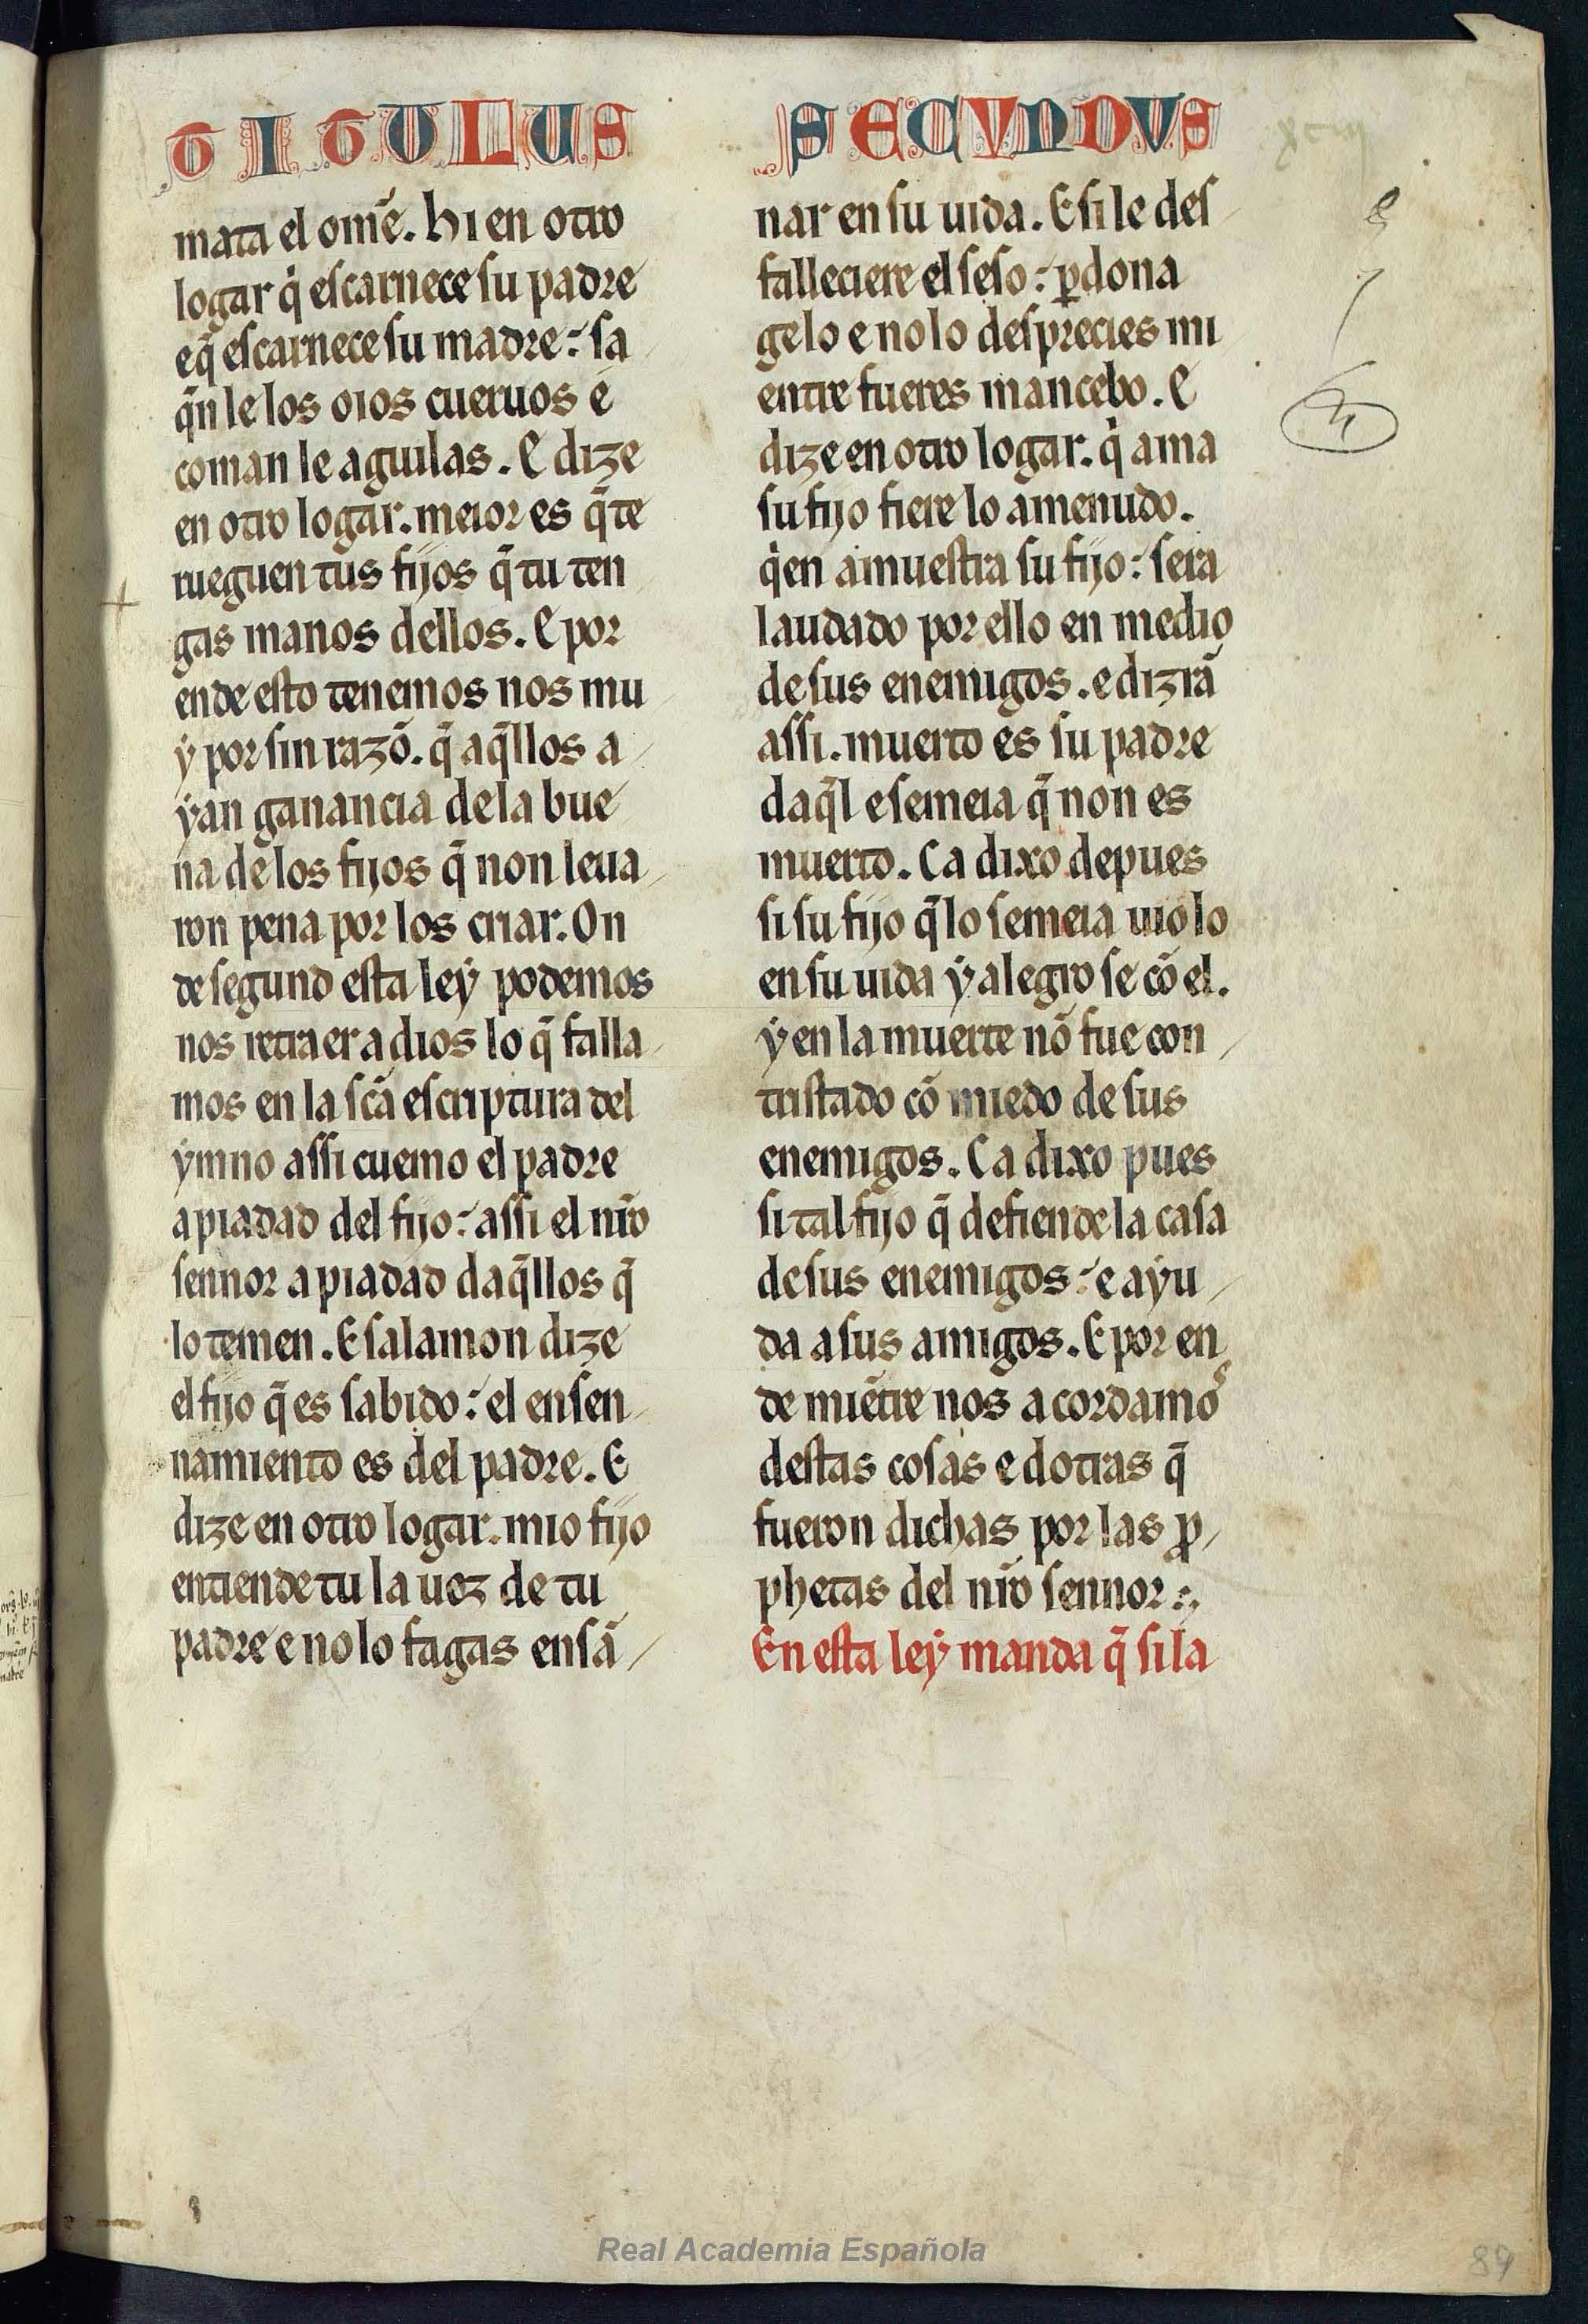 TITULUS
mata el omẽ. hi en otro
logar q̇ escarnece su padre
e q̃ escarnece su madre: sa
q̃n le los oios cueruos e
coman le aguilas. E dize
en otro logar. meior es q̃ te
rueguen tus fijos q̃ tu ten
gas manos dellos. E por
ende esto tenemos nos mu
ẏ por sin razõ. q̃ aq̃llos a
ẏan ganancia de la bue
na de los fijos q̃ non leua
ron pena por los criar. On
de segund esta leẏ podemos
nos retraer a dios lo q̃ falla
mos en la sc̃a escriptura del
ẏmno assi cuemo el padre
a piadad del fijo: assi el nr̃o
sennor a piadad daq̃llos q̃
lo temen. E salamon dize
el fijo q̃ es sabido: el ensen
namiento es del padre. E
dize en otro logar. mio fijo
entiende tu la uoz de tu
padre e no lo fagas ensã
SECVNDVS
nar en su uida. E si le des
falleciere el seso: ꝑdona
gelo e no lo desprecies mi
entre fueres mancebo. E
dize en otro logar. q̇ ama
su fijo fiere lo amenudo.
q̇en amuestra su fijo: sera
laudado por ello en medio
de sus enemigos. e dizrã
assi. muerto es su padre
daq̃l e semeia q̃ non es
muerto. Ca dixo depues
si su fijo q̃ lo semeia uio lo
en su uida ẏ alegro se cõ el.
ẏ en la muerte nõ fue con
tristado cõ miedo de sus
enemigos. Ca dixo pues
si tal fijo q̃ defiende la casa
de sus enemigos: e aẏu
da a sus amigos. E por en
de miẽtre nos acordamoˢ
destas cosas e dotras q̃
fueron dichas por las ꝓ
phetas del nr̃o sennor:.
En esta leẏ manda q̃ si la
Real Academia Española
89